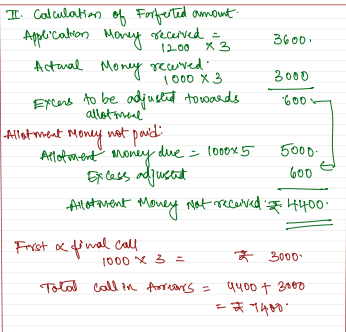 II. Calculation of Forferted amount.
Application Money received =
1200 × 3 3600.
Actual Money received.
1000 × 3 3000
Excess to be adjusted towards 600
allotment
Allotment Money not paid:
Allotment money due = 1000×5 5000.
Excess adjusted 600
Allotment Money Not received ₹ 4400.
First & final call
1000 × 3 = ₹ 3000.
Total call in Arrears = 4400 + 3000
= ₹ 7400.